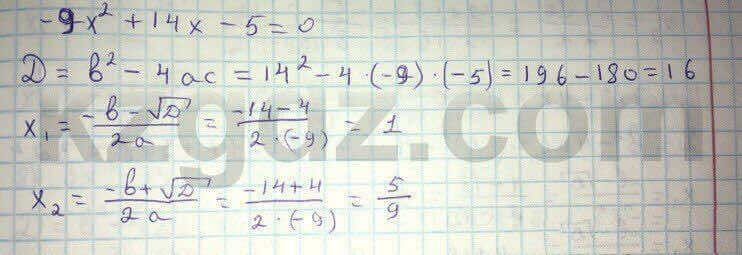 -9x² + 14x - 5 = 0
D = b² - 4ac = 14² - 4·(-9)·(-5) = 196 - 180 = 16
x₁ = (-b - √D)/(2a) = (-14 - 4)/(2·(-9)) = 1
x₂ = (-b + √D)/(2a) = (-14 + 4)/(2·(-9)) = 5/9
kzgdz.com